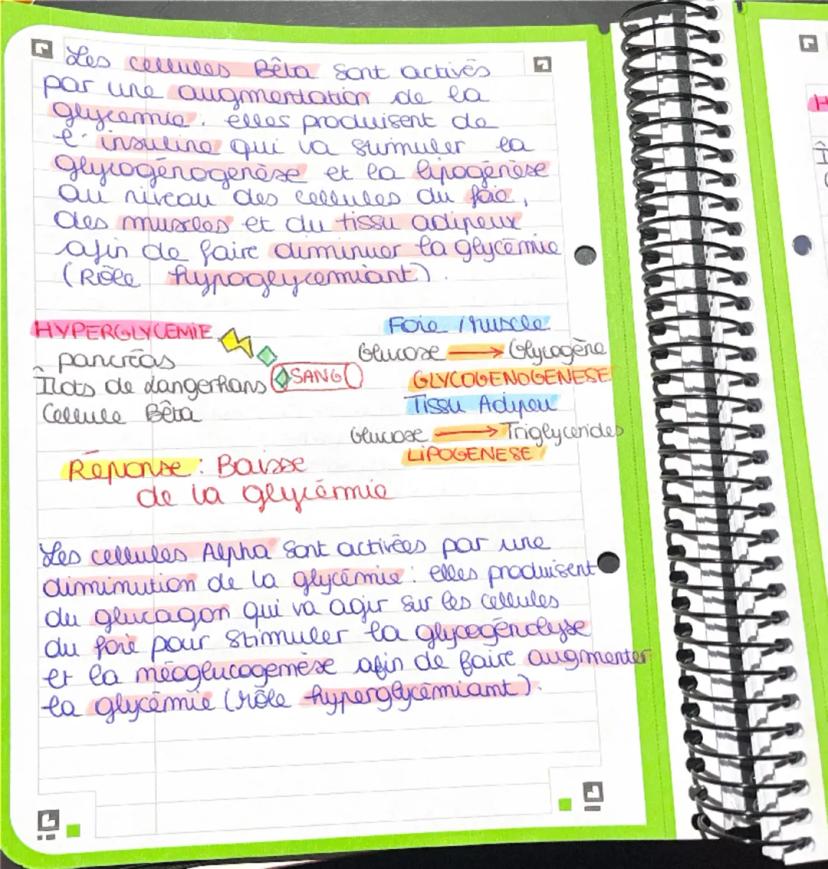 Les cellules Bêta sont activés
par une augmentation de la
glycémie. elles produisent de
l'insuline qui va stimuler la
glycogénogenèse et la lipogénèse
au niveau des cellules du foie,
des muscles et du tissu adipeux
afin de faire diminuer la glycémie
(Rôle hypoglycemiant).
HYPERGLYCEMIE
pancréas
Îlots de Langerhans
Cellule Bêta
SANG
Foie / Muscle
Glucose → Glycogène
GLYCOGENOGENESE
Tissu Adipeu
Glucose → Triglycerides
LIPOGENESE
Réponse : Baisse
de la glycémie
Les cellules Alpha sont activées par une
diminution de la glycémie : elles produisent
du glucagon qui va agir sur les cellules
du foie pour stimuler la glycogénolyse
et la néoglucogenèse afin de faire augmenter
la glycémie (rôle hyperglycémiant).